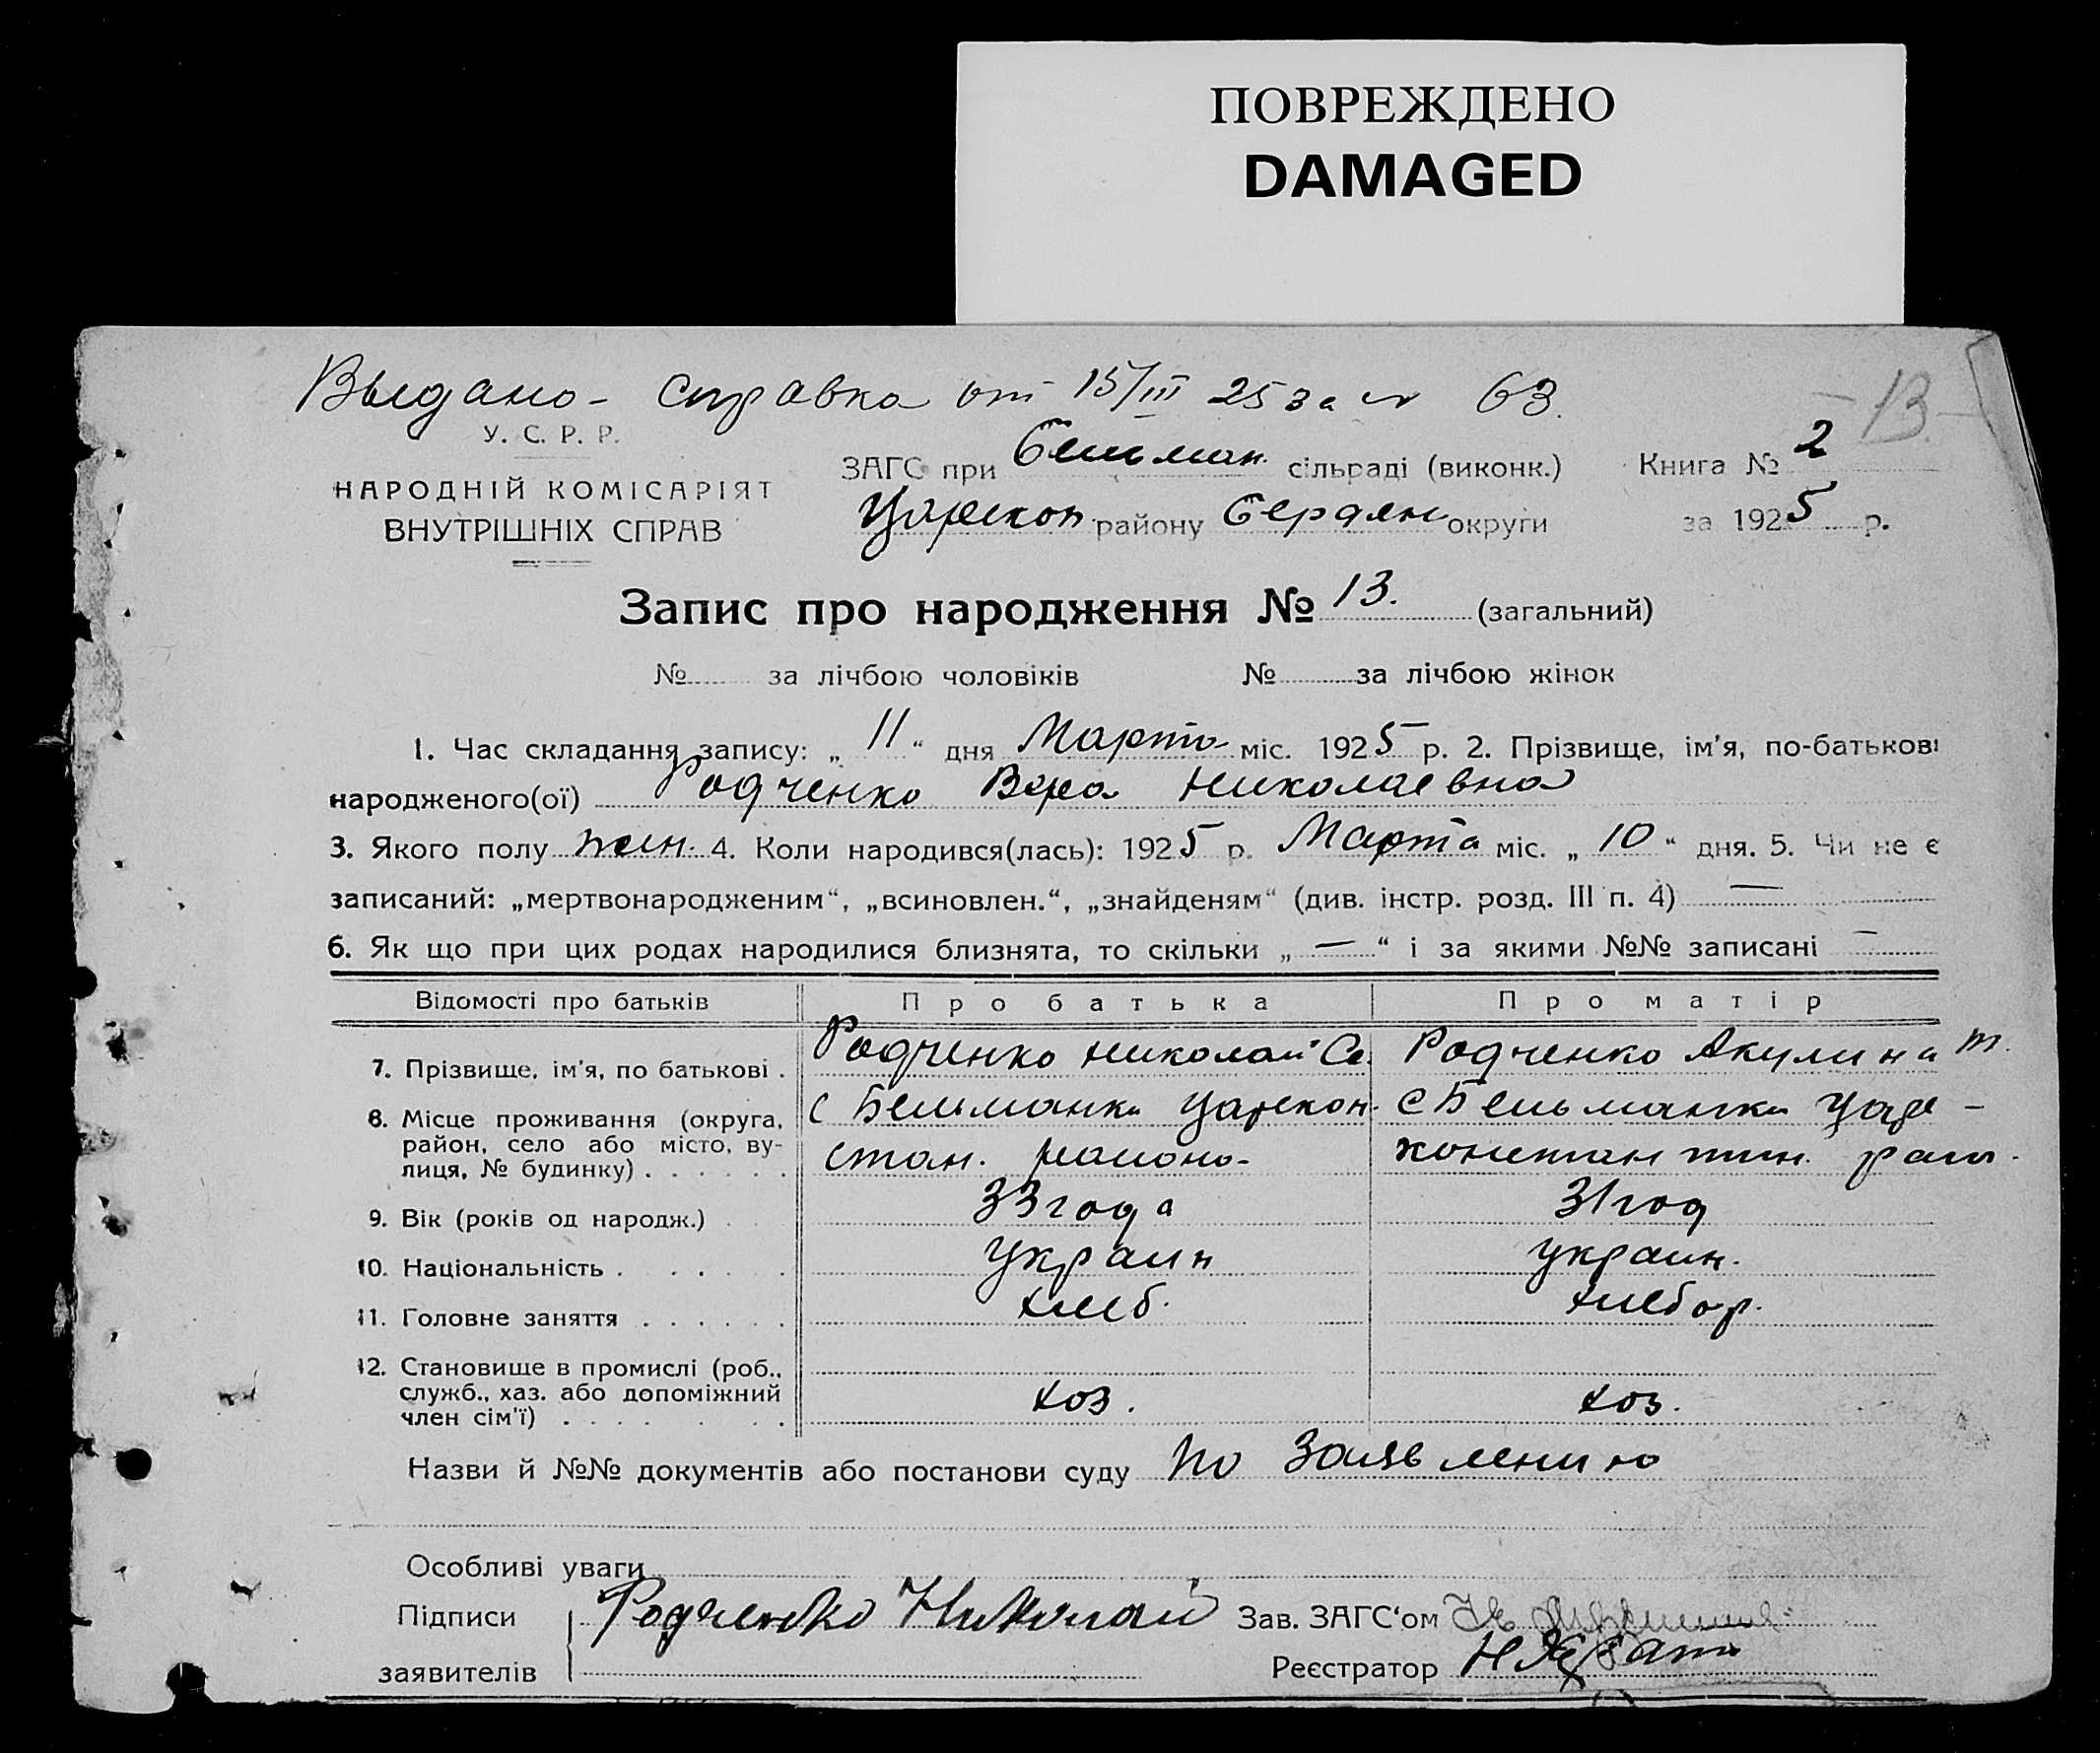 ПОВРЕЖДЕНО
DAMAGED
Выдано - справка от 15/III 25 за № 63.
- 13 -
У. С. Р. Р.
НАРОДНІЙ КОМІСАРІЯТ
ВНУТРІШНІХ СПРАВ
ЗАГС при Бельман. сільраді (виконк.) Книга № 2
Царекон. району Бердян округи за 1925 р.
Запис про народження № 13. (загальний)
№ за лічбою чоловіків № за лічбою жінок
1. Час складання запису: „ 11 “ дня Марта міс. 1925 р. 2. Прізвище, ім'я, по-батькові
народженого(ої) Родченко Вера Николаевна
3. Якого полу жен. 4. Коли народився(лась): 1925 р. Марта міс. „ 10 “ дня. 5. Чи не є
записаний: „мертвонародженим“, „всиновлен.“, „знайденям“ (див. інстр. розд. III п. 4) —
6. Як що при цих родах народилися близнята, то скільки „ — “ і за якими №№ записані —
Відомості про батьків Про батька Про матір
7. Прізвище, ім'я, по батькові . Родченко Николай Се. Родченко Акулина т.
8. Місце проживання (округа, район, село або місто, вулиця, № будинку) . . . . . . с Бельманки Царекон- стан. района- с Бельманки Царе- константин. райо.
9. Вік (років од народж.) . 33 года 31 год
10. Національність . . . . . Украин украин.
11. Головне заняття . . . . . . хлеб. хлебор.
12. Становище в промислі (роб., служб., хаз. або допоміжний член сім'ї) . . . . . . . хоз. хоз.
Назви й №№ документів або постанови суду по заявлению
Особливі уваги
Підписи Родченко Николай Зав. ЗАГС‘ом
заявителів Реєстратор